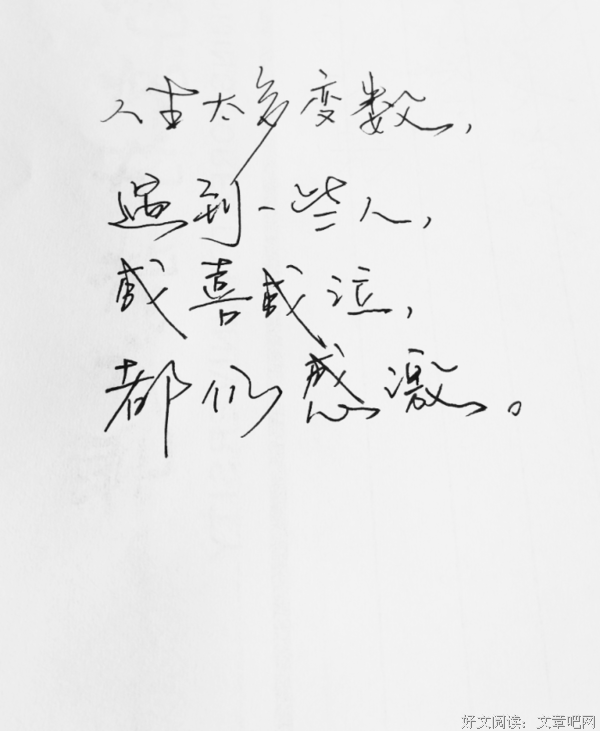 人生太多变数，
遇到一些人，
或喜或泣，
都仍感激。
好文阅读：文章吧网